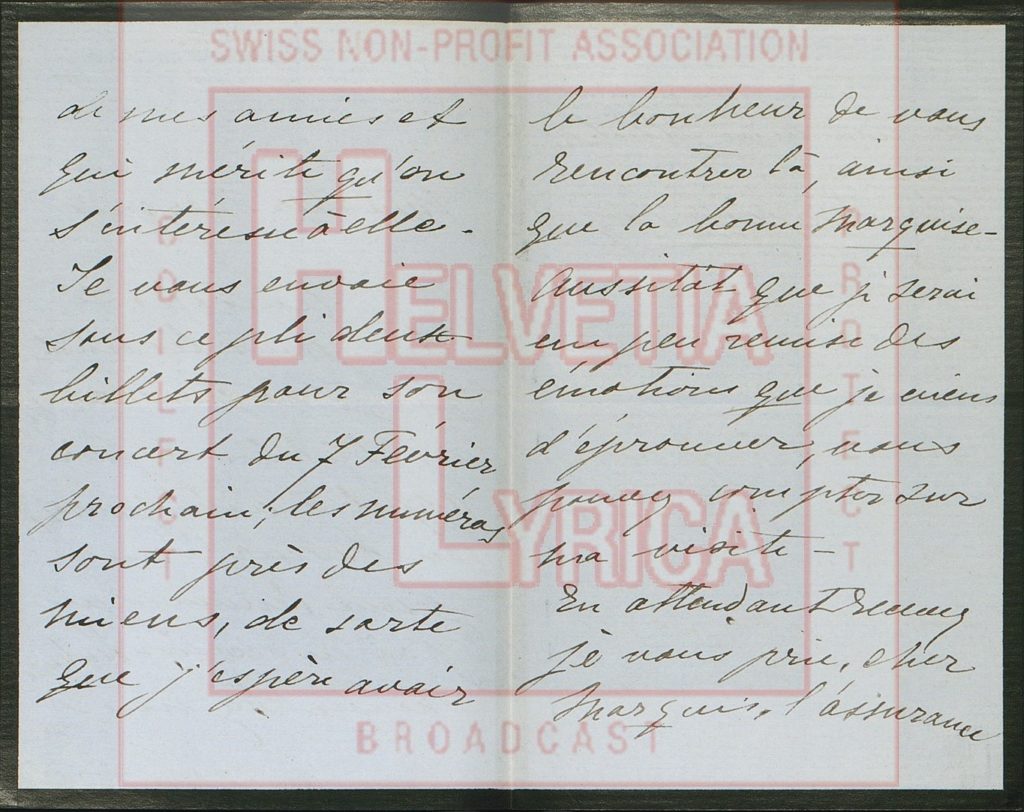 SWISS NON-PROFIT ASSOCIATION
HELVETIA
LYRICA
BROADCAST
de mes amies et
qui mérite qu'on
s'intéresse à elle -
Je vous envoie
sous ce pli deux
billets pour son
concert du 7 Février
prochain; les numéros
sont près des
miens, de sorte
que j'espère avoir
le bonheur de vous
rencontrer là, ainsi
que la bonne Marquise -
Aussitôt que je serai
un peu remise des
émotions que je viens
d'éprouver, vous
pouvez compter sur
ma visite -
En attendant recevez
je vous prie, cher
Marquis, l'assurance